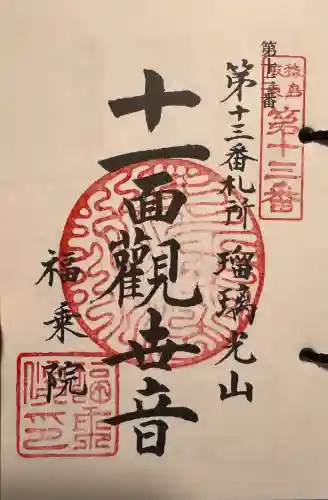 第十三番
第十三番
第十三番札所 瑠璃光山
十一面觀世音
福乗院